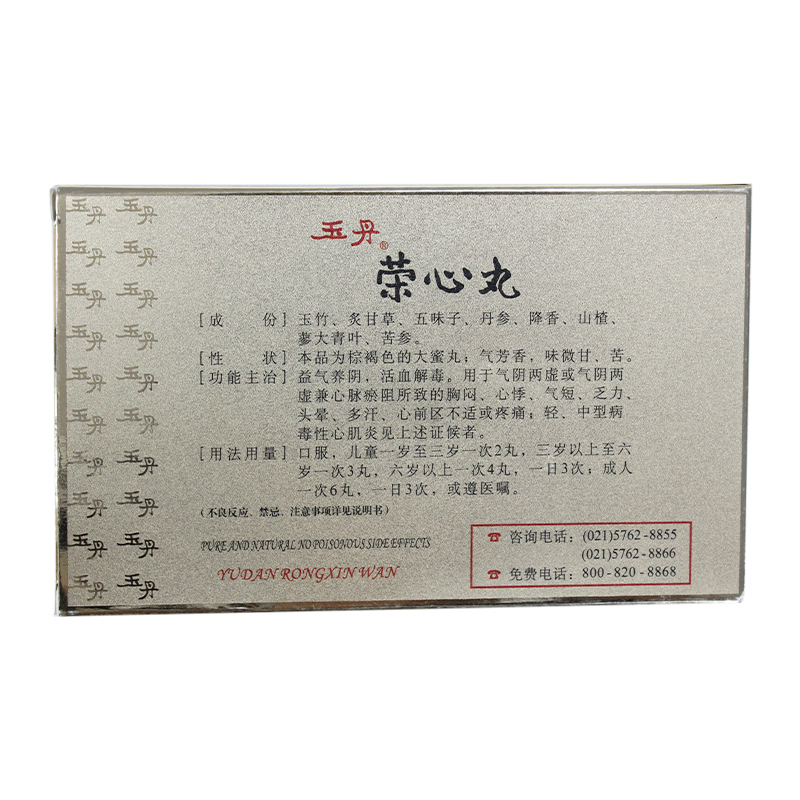 玉丹®
荣心丸
[成 份] 玉竹、炙甘草、五味子、丹参、降香、山楂、
蓼大青叶、苦参。
[性 状] 本品为棕褐色的大蜜丸；气芳香，味微甘、苦。
[功能主治] 益气养阴，活血解毒。用于气阴两虚或气阴两
虚兼心脉瘀阻所致的胸闷、心悸、气短、乏力、
头晕、多汗、心前区不适或疼痛；轻、中型病
毒性心肌炎见上述证候者。
[用法用量] 口服，儿童一岁至三岁一次2丸，三岁以上至六
岁一次3丸，六岁以上一次4丸，一日3次；成人
一次6丸，一日3次，或遵医嘱。
（不良反应、禁忌、注意事项详见说明书）
PURE AND NATURAL NO POISONOUS SIDE EFFECTS
YUDAN RONGXIN WAN
☎ 咨询电话：(021)5762-8855
(021)5762-8866
☎ 免费电话：800-820-8868
玉丹 玉丹
玉丹 玉丹
玉丹 玉丹
玉丹 玉丹
玉丹 玉丹
玉丹 玉丹
玉丹 玉丹
玉丹 玉丹
玉丹 玉丹
玉丹 玉丹